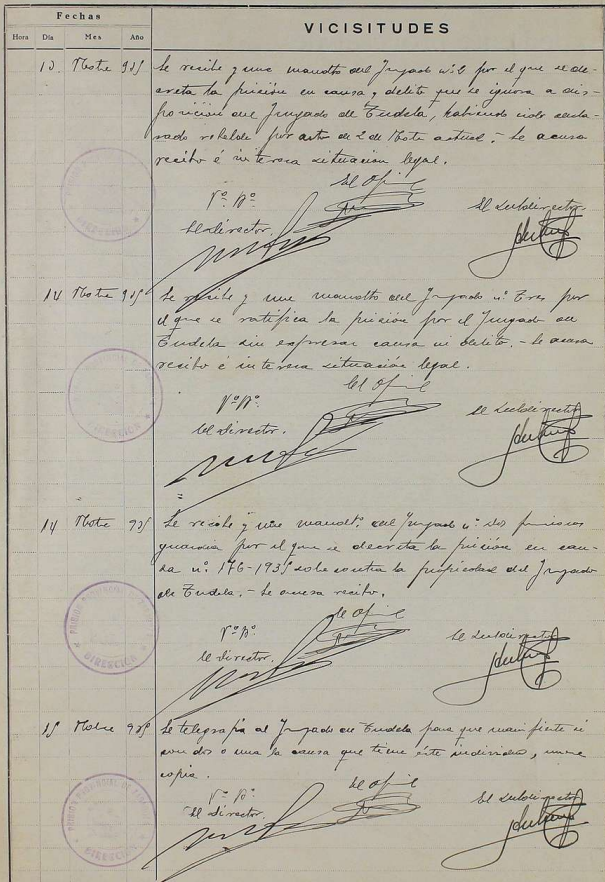 Fechas
VICISITUDES
Hora Dia Mes Año
13 9bre 935 Se recibe y une mandtº del Juzgado nº 6 por el que se de-
creta la prisión en causa y delito que se ignora a dis-
posición del Juzgado de Tudela, habiendo sido decla-
rado rebelde por auto de 2 de 9bre actual. - Se acusa
recibo é interesa situacion legal.
El Ofi
Vº Bº
El director. El Subdirector
14 9bre 935 Se recibe y une mandtº del Juzgado nº Tres por
el que se ratifica la prisión por el Juzgado de
Tudela sin expresar causa ni delito. - Se acusa
recibo é interesa situación legal.
El Ofi
Vº Bº El Subdirector
El director.
14 9bre 935 Se recibe y une mandtº del Juzgado nº dos funciones
guardia por el que se decreta la prisión en cau-
sa nº 176-1935 sobre contra la propiedad del Juzgado
de Tudela. - Se acusa recibo.
El Ofi
Vº Bº El Subdirector
El director.
PRISION PROVINCIAL DE
DIRECCION
15 9bre 935 Se telegrafía al Juzgado de Tudela para que manifieste si
son dos o una la causa que tiene éste individuo, une
copia.
El Ofi
Vº Bº El Subdirector
El director
PRISION PROVINCIAL DE
DIRECCION